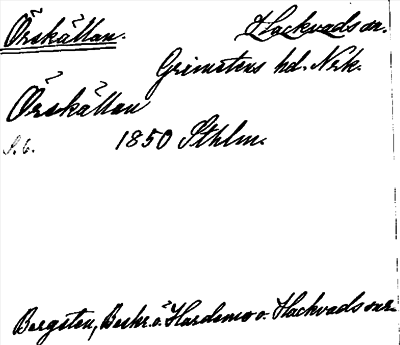 Örskällan. Hackvads sn.
Grimstens hd. Nrk.
Örskällan
S. 6. 1850 Sthlm.
Bergsten, Beskr. ö. Hardemo o. Hackvads snr.